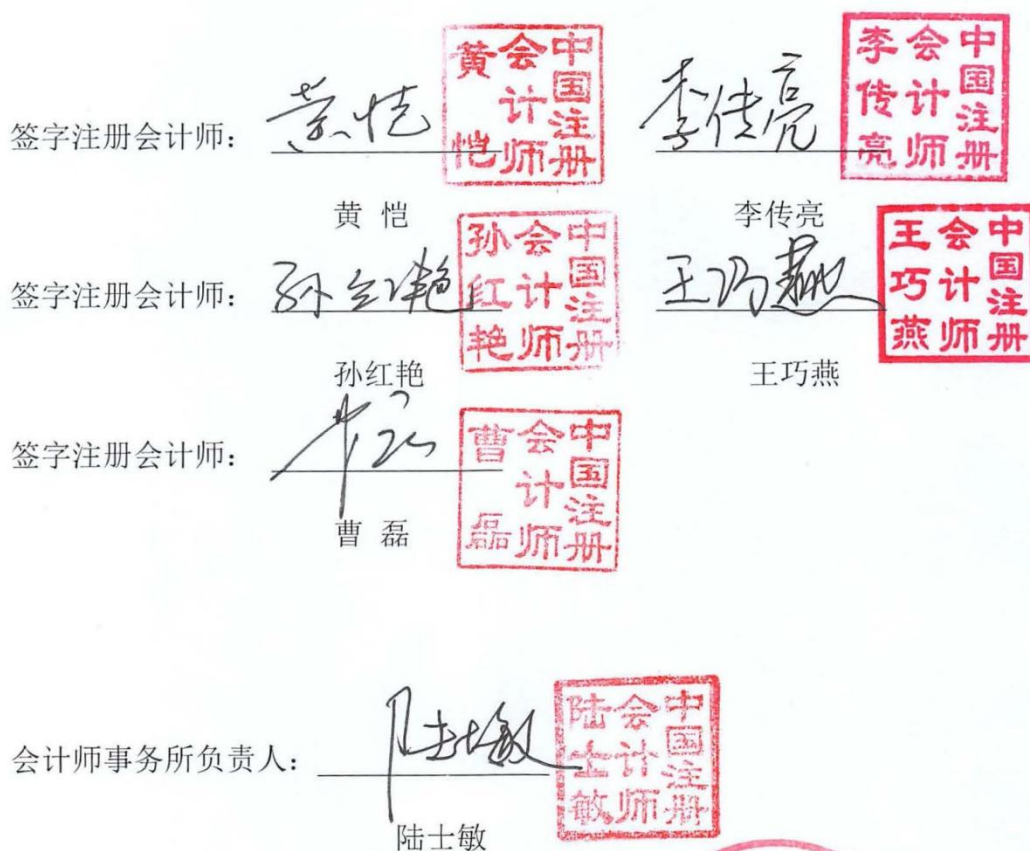 签字注册会计师： 黄恺 中国注册会计师黄恺 李传亮 中国注册会计师李传亮
黄 恺 李传亮
签字注册会计师： 孙红艳 中国注册会计师孙红艳 王巧燕 中国注册会计师王巧燕
孙红艳 王巧燕
签字注册会计师： 曹磊 中国注册会计师曹磊
曹 磊
会计师事务所负责人： 陆士敏 中国注册会计师陆士敏
陆士敏